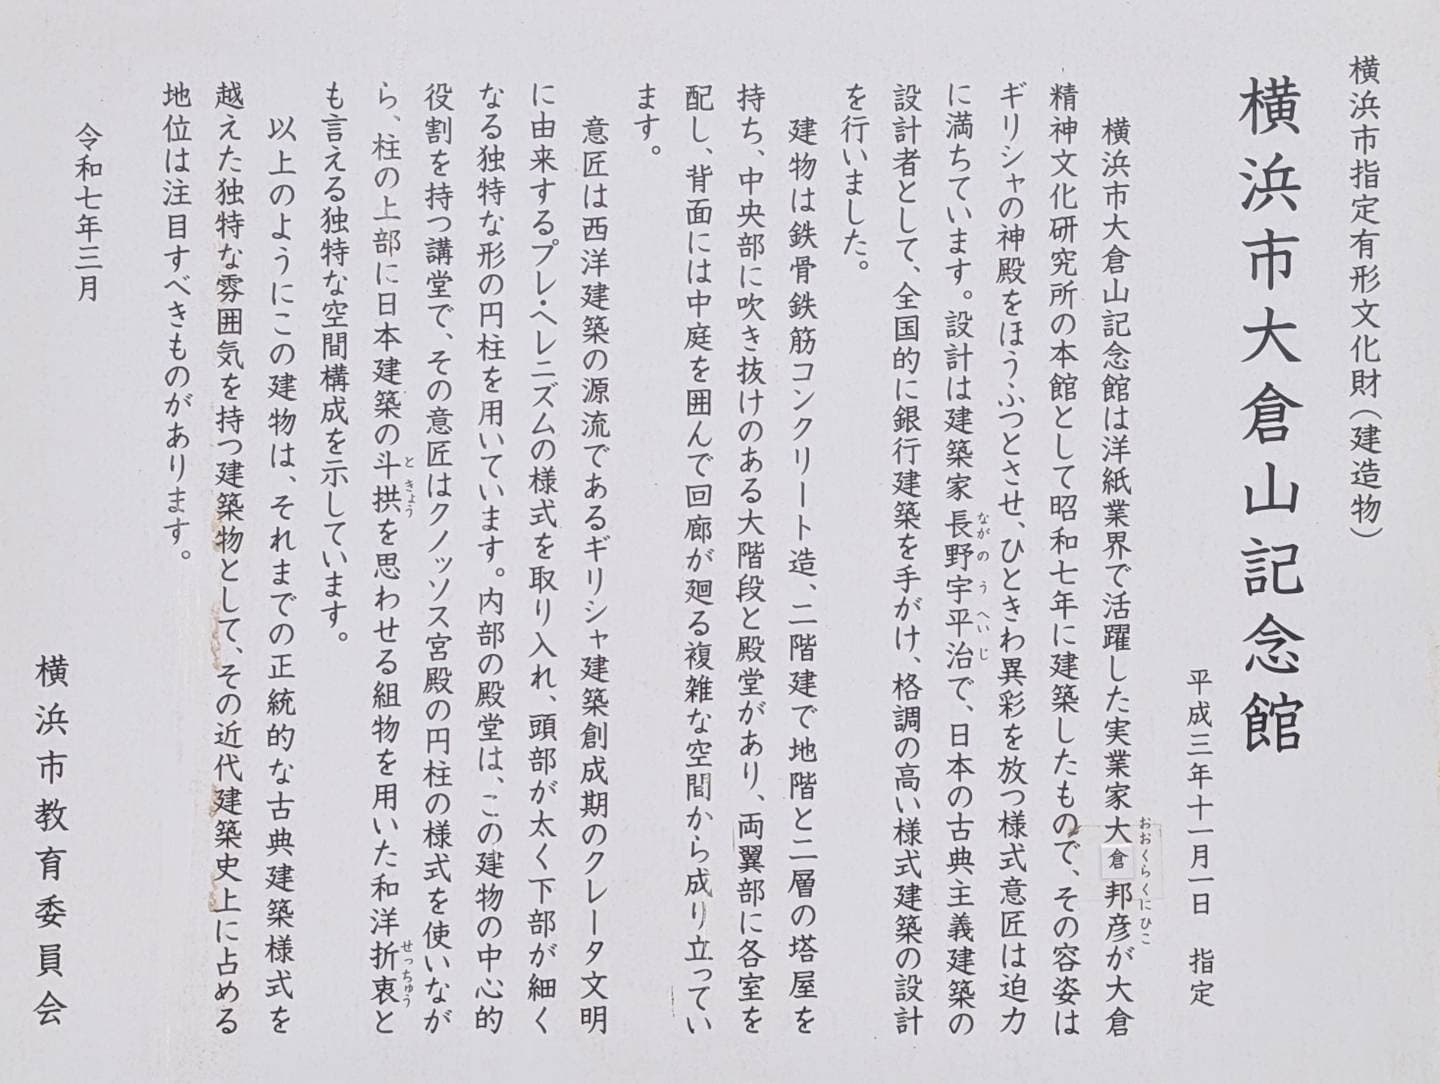 横浜市指定有形文化財（建造物）
横浜市大倉山記念館
平成三年十一月一日　指定
横浜市大倉山記念館は洋紙業界で活躍した実業家大倉邦彦が大倉
おおくらくにひこ
精神文化研究所の本館として昭和七年に建築したもので、その容姿は
ギリシャの神殿をほうふつとさせ、ひときわ異彩を放つ様式意匠は迫力
に満ちています。設計は建築家長野宇平治で、日本の古典主義建築の
ながの うへいじ
設計者として、全国的に銀行建築を手がけ、格調の高い様式建築の設計
を行いました。
建物は鉄骨鉄筋コンクリート造、二階建で地階と二層の塔屋を
持ち、中央部に吹き抜けのある大階段と殿堂があり、両翼部に各室を
配し、背面には中庭を囲んで回廊が廻る複雑な空間から成り立ってい
ます。
意匠は西洋建築の源流であるギリシャ建築創成期のクレータ文明
に由来するプレ・ヘレニズムの様式を取り入れ、頭部が太く下部が細く
なる独特な形の円柱を用いています。内部の殿堂は、この建物の中心的
役割を持つ講堂で、その意匠はクノッソス宮殿の円柱の様式を使いなが
ら、柱の上部に日本建築の斗拱を思わせる組物を用いた和洋折衷と
ときょう
せっちゅう
も言える独特な空間構成を示しています。
以上のようにこの建物は、それまでの正統的な古典建築様式を
越えた独特な雰囲気を持つ建築物として、その近代建築史上に占める
地位は注目すべきものがあります。
令和七年三月
横浜市教育委員会